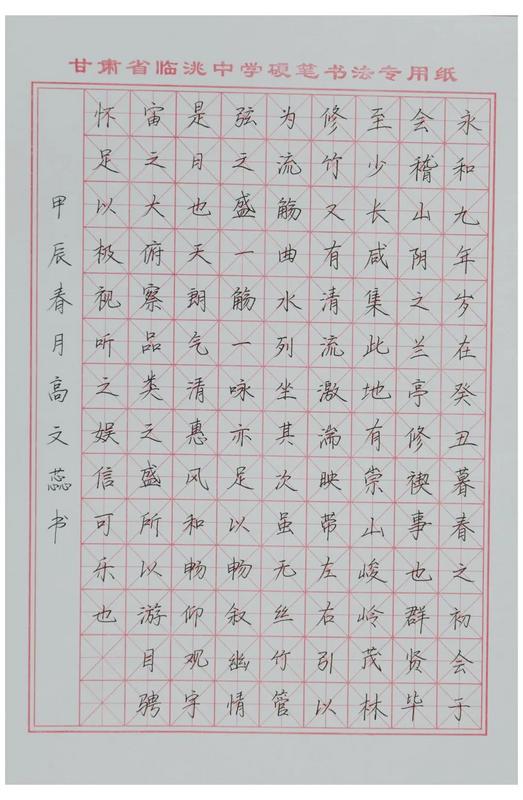 甘肃省临洮中学硬笔书法专用纸
永和九年岁在癸丑暮春之初会于
会稽山阴之兰亭修禊事也群贤毕
至少长咸集此地有崇山峻岭茂林
修竹又有清流激湍映带左右引以
为流觞曲水列坐其次虽无丝竹管
弦之盛一觞一咏亦足以畅叙幽情
是日也天朗气清惠风和畅仰观宇
宙之大俯察品类之盛所以游目骋
怀足以极视听之娱信可乐也
甲辰春月高文蕊书